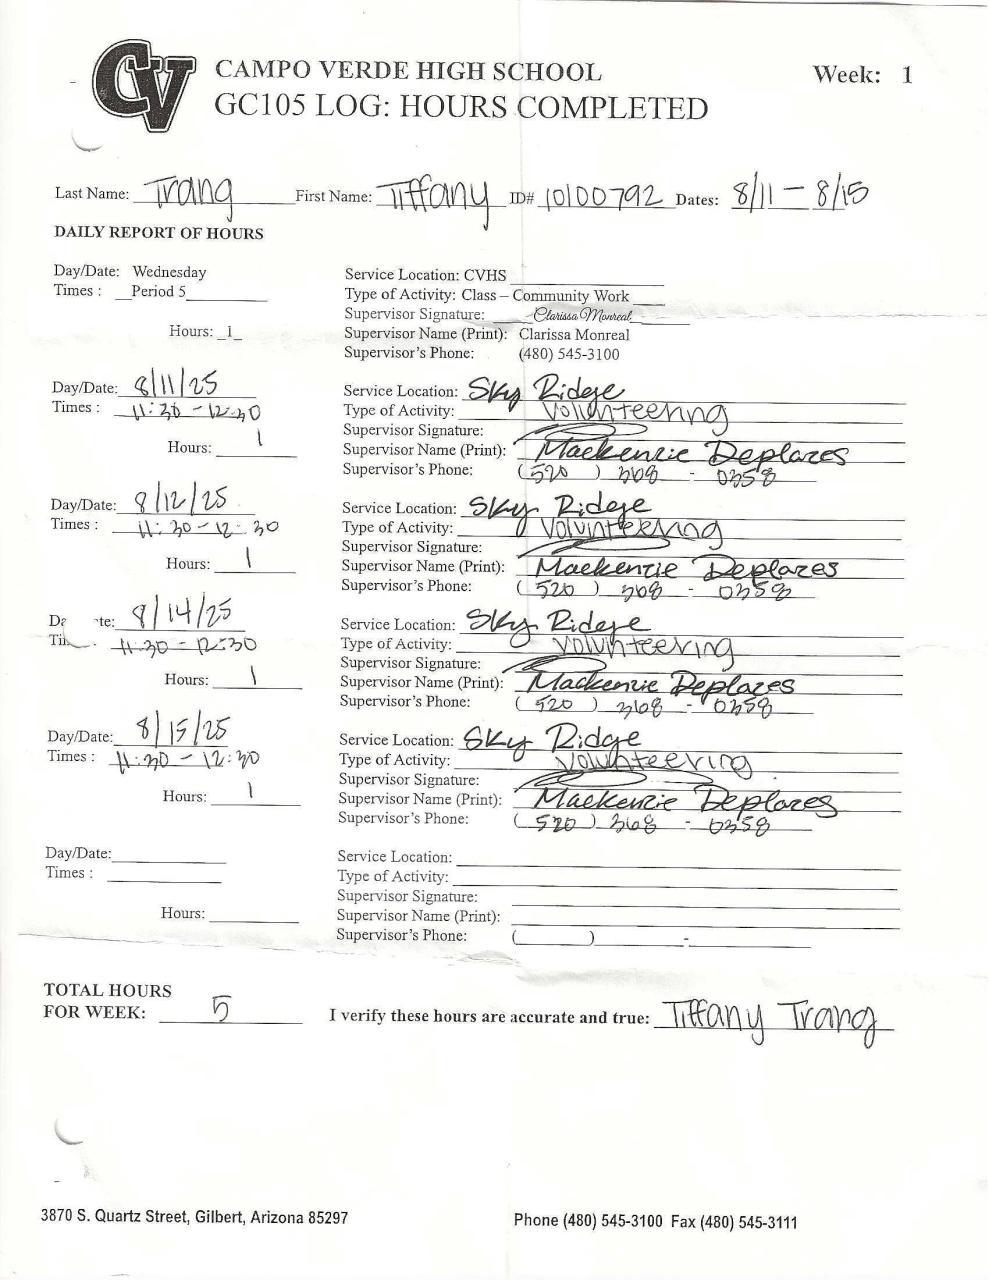 CV
CAMPO VERDE HIGH SCHOOL Week: 1
GC105 LOG: HOURS COMPLETED
Last Name: Trang First Name: Tiffany ID# 10100792 Dates: 8/11 - 8/15
DAILY REPORT OF HOURS
Day/Date: Wednesday
Times : Period 5
Hours: 1
Service Location: CVHS
Type of Activity: Class – Community Work
Supervisor Signature: Clarissa Monreal
Supervisor Name (Print): Clarissa Monreal
Supervisor's Phone: (480) 545-3100
Day/Date: 8/11/25
Times : 11:30 - 12:30
Hours: 1
Service Location: Sky Ridge
Type of Activity: Volunteering
Supervisor Signature:
Supervisor Name (Print): Mackenzie Deplazes
Supervisor's Phone: (520) 368 - 0358
Day/Date: 8/12/25
Times : 11:30 - 12:30
Hours: 1
Service Location: Sky Ridge
Type of Activity: Volunteering
Supervisor Signature:
Supervisor Name (Print): Mackenzie Deplazes
Supervisor's Phone: (520) 368 - 0358
Da te: 8/14/25
Ti : 11:30 - 12:30
Hours: 1
Service Location: Sky Ridge
Type of Activity: Volunteering
Supervisor Signature:
Supervisor Name (Print): Mackenzie Deplazes
Supervisor's Phone: (520) 368 - 0358
Day/Date: 8/15/25
Times : 11:30 - 12:30
Hours: 1
Service Location: Sky Ridge
Type of Activity: Volunteering
Supervisor Signature:
Supervisor Name (Print): Mackenzie Deplazes
Supervisor's Phone: (520) 368 - 0358
Day/Date:
Times :
Hours:
Service Location:
Type of Activity:
Supervisor Signature:
Supervisor Name (Print):
Supervisor's Phone: ( ) -
TOTAL HOURS
FOR WEEK: 5 I verify these hours are accurate and true: Tiffany Trang
3870 S. Quartz Street, Gilbert, Arizona 85297 Phone (480) 545-3100 Fax (480) 545-3111